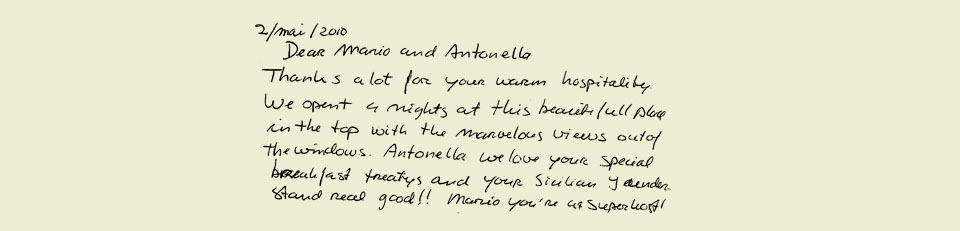 2/mai/2010
Dear Mario and Antonella
Thanks a lot for your warm hospitality
We spent 4 nights at this beautifull place
in the top with the marvelous views outof
the windows. Antonella we love your special
breakfast treatys and your Sicilian I under
stand real good!! Mario you're a superhost!